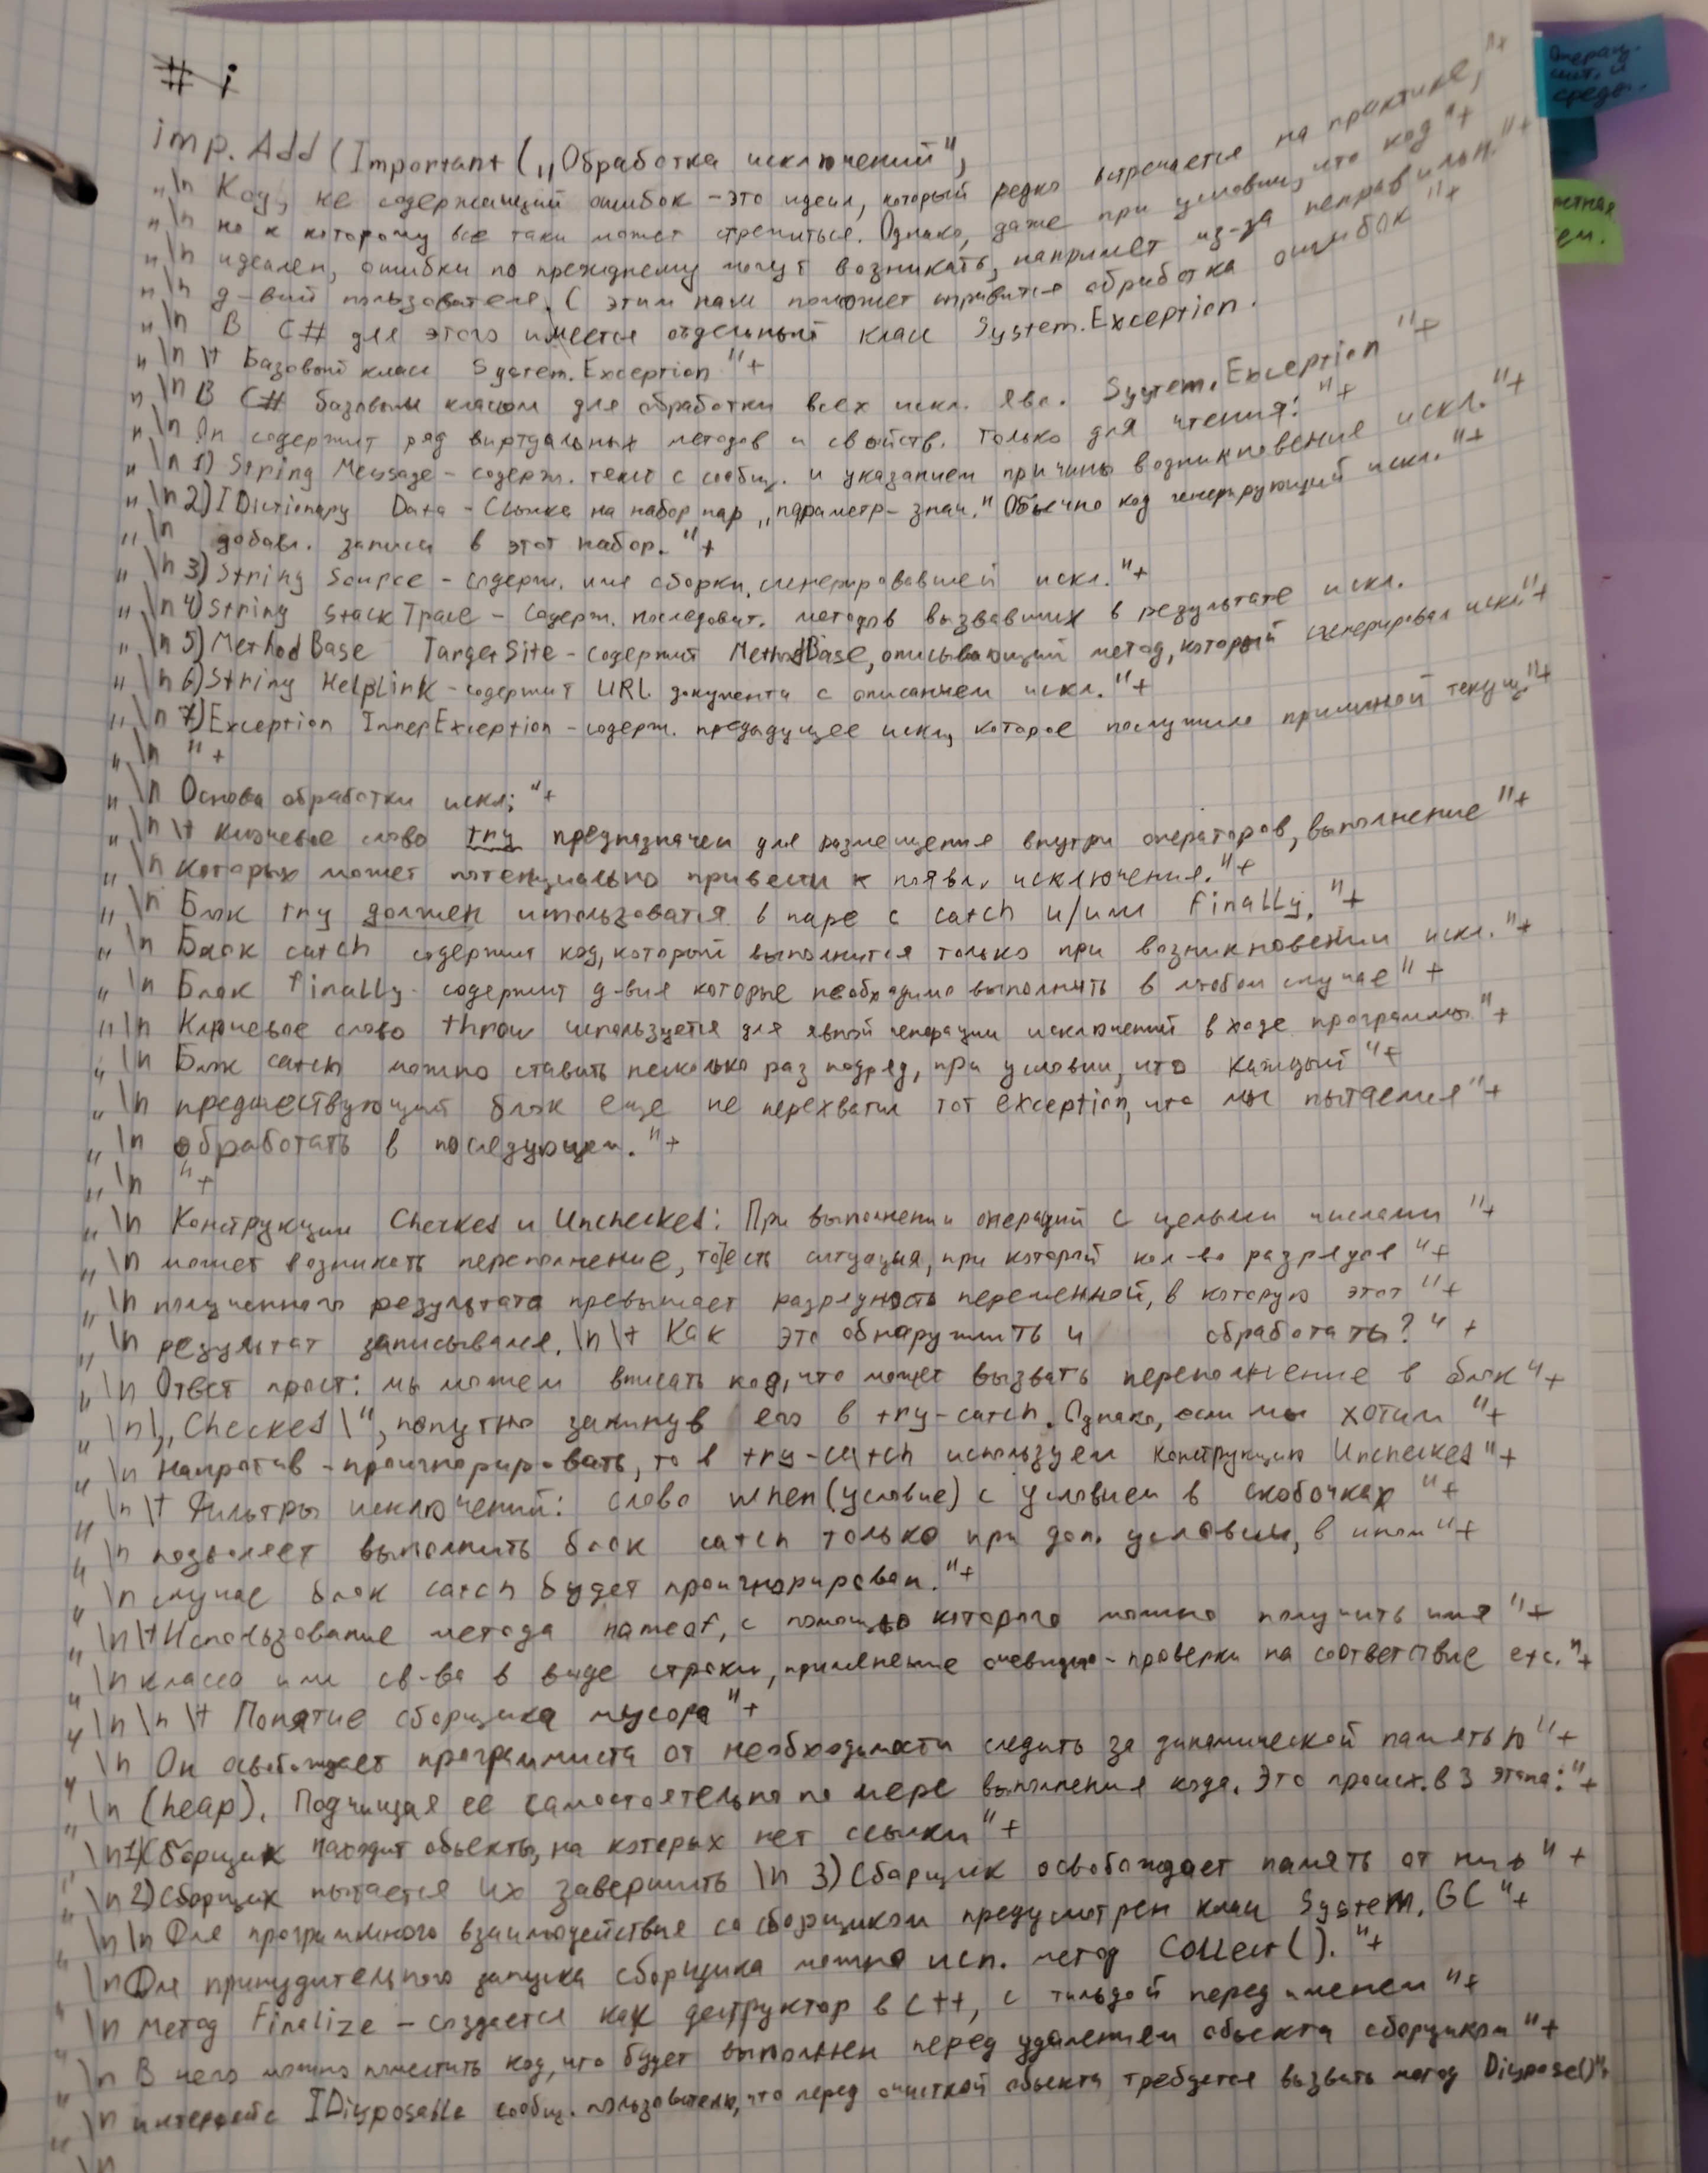 # i
imp. Add (Important („Обработка исключений",
„\n Код, не содержащий ошибок - это идеал, который редко встречается на практике, "+
„\n но к которому все таки может стремиться. Однако, даже при условии, что код "+
„\n идеален, ошибки по прежднему могут возникать, например из-за неправильн. "+
„\n д-вий пользователя. С этим нам поможет справится обработка ошибок "+
„\n В C# для этого имеется отдельный класс System.Exception.
„\n \t Базовый класс System.Exception "+
„\n В C# базовым класом для обработки всех искл. явл. System.Exception "+
„\n Он содержит ряд виртуальных методов и свойств. только для чтения: "+
„\n 1) String Message - содерж. текст с сообщ. и указанием причины возникновение искл. "+
„\n 2) IDictionary Data - Ссылка на набор пар „параметр-знач." Обычно код генерирующий искл. "+
„\n добавл. записи в этот набор. "+
„\n 3) String Source - содерж. имя сборки, сгенерировавшей искл. "+
„\n 4) String StackTrace - Содерж. последоват. методов вызвавших в результате искл.
„\n 5) MethodBase TargetSite - содержит MethodBase, описывающий метод, который сгенерировал искл. "+
„\n 6) String HelpLink - содержит URL документа с описанием искл. "+
„\n 7) Exception InnerException - содерж. предыдущее искл, которое послужило причиной текущ. "+
„\n "+
„\n Основа обработки искл; "+
„\n \t Ключевое слово try предназначен для размещения внутри операторов, выполнение "+
„\n которых может потенциально привести к появл. исключения. "+
„\n Блок try должен использоватся в паре с catch и/или finally. "+
„\n Блок catch содержит код, который выполнится только при возникновении искл. "+
„\n Блок finally - содержит д-вия которые необходимо выполнить в любом случае "+
„\n Ключевое слово throw используется для явной генерации исключений в ходе программы "+
„\n Блок catch можно ставить несколько раз подряд, при условии, что каждый "+
„\n предшествующий блок еще не перехватил тот exception, что мы пытаемся "+
„\n обработать в последующем. "+
„\n "+
„\n Конструкции Checked и Unchecked: При выполнении операций с целыми числами "+
„\n может возникать переполнение, то есть ситуация, при которой кол-во разрядов "+
„\n полученного результата превышает разрядность переменной, в которую этот "+
„\n результат записывался. \n \t Как это обнаружить и обработать? "+
„\n Ответ прост: мы можем вписать код, что может вызвать переполнение в блок "+
„\n \„Checked\", попутно закинув его в try-catch. Однако, если мы хотим "+
„\n Напротив - проигнорировать, то в try-catch используем конструкцию Unchecked "+
„\n \t Фильтры исключений: слово when(условие) с условием в скобочках "+
„\n позволяет выполнить блок catch только при доп. условии, в ином "+
„\n случае блок catch будет проигнорирован. "+
„\n \t Использование метода nameof, с помощью которого можно получить имя "+
„\n класса или св-ва в виде строки, применение очевидно - проверки на соответствие etc. "+
„\n \n \t Понятие сборщика мусора "+
„\n Он освобождает программиста от необходимости следить за динамической памятью "+
„\n (heap). Подчищая ее самостоятельно по мере выполнения кода. Это происх. в 3 этапа: "+
„\n 1) Сборщик находит объекты, на которых нет ссылки "+
„\n 2) Сборщик пытается их завершить \n 3) Сборщик освобождает память от них "+
„\n \n Для программного взаимодействия со сборщиком предусмотрен класс System.GC "+
„\n Для принудительного запуска сборщика можно исп. метод Collect(). "+
„\n Метод Finalize - создается как деструктор в C++, с тильдой перед именем "+
„\n В него можно поместить код, что будет выполнен перед удалением объекта сборщиком "+
„\n интерфейс IDisposable сообщ. пользователю, что перед очисткой объекта требуется вызвать метод Dispose() "+
„\n